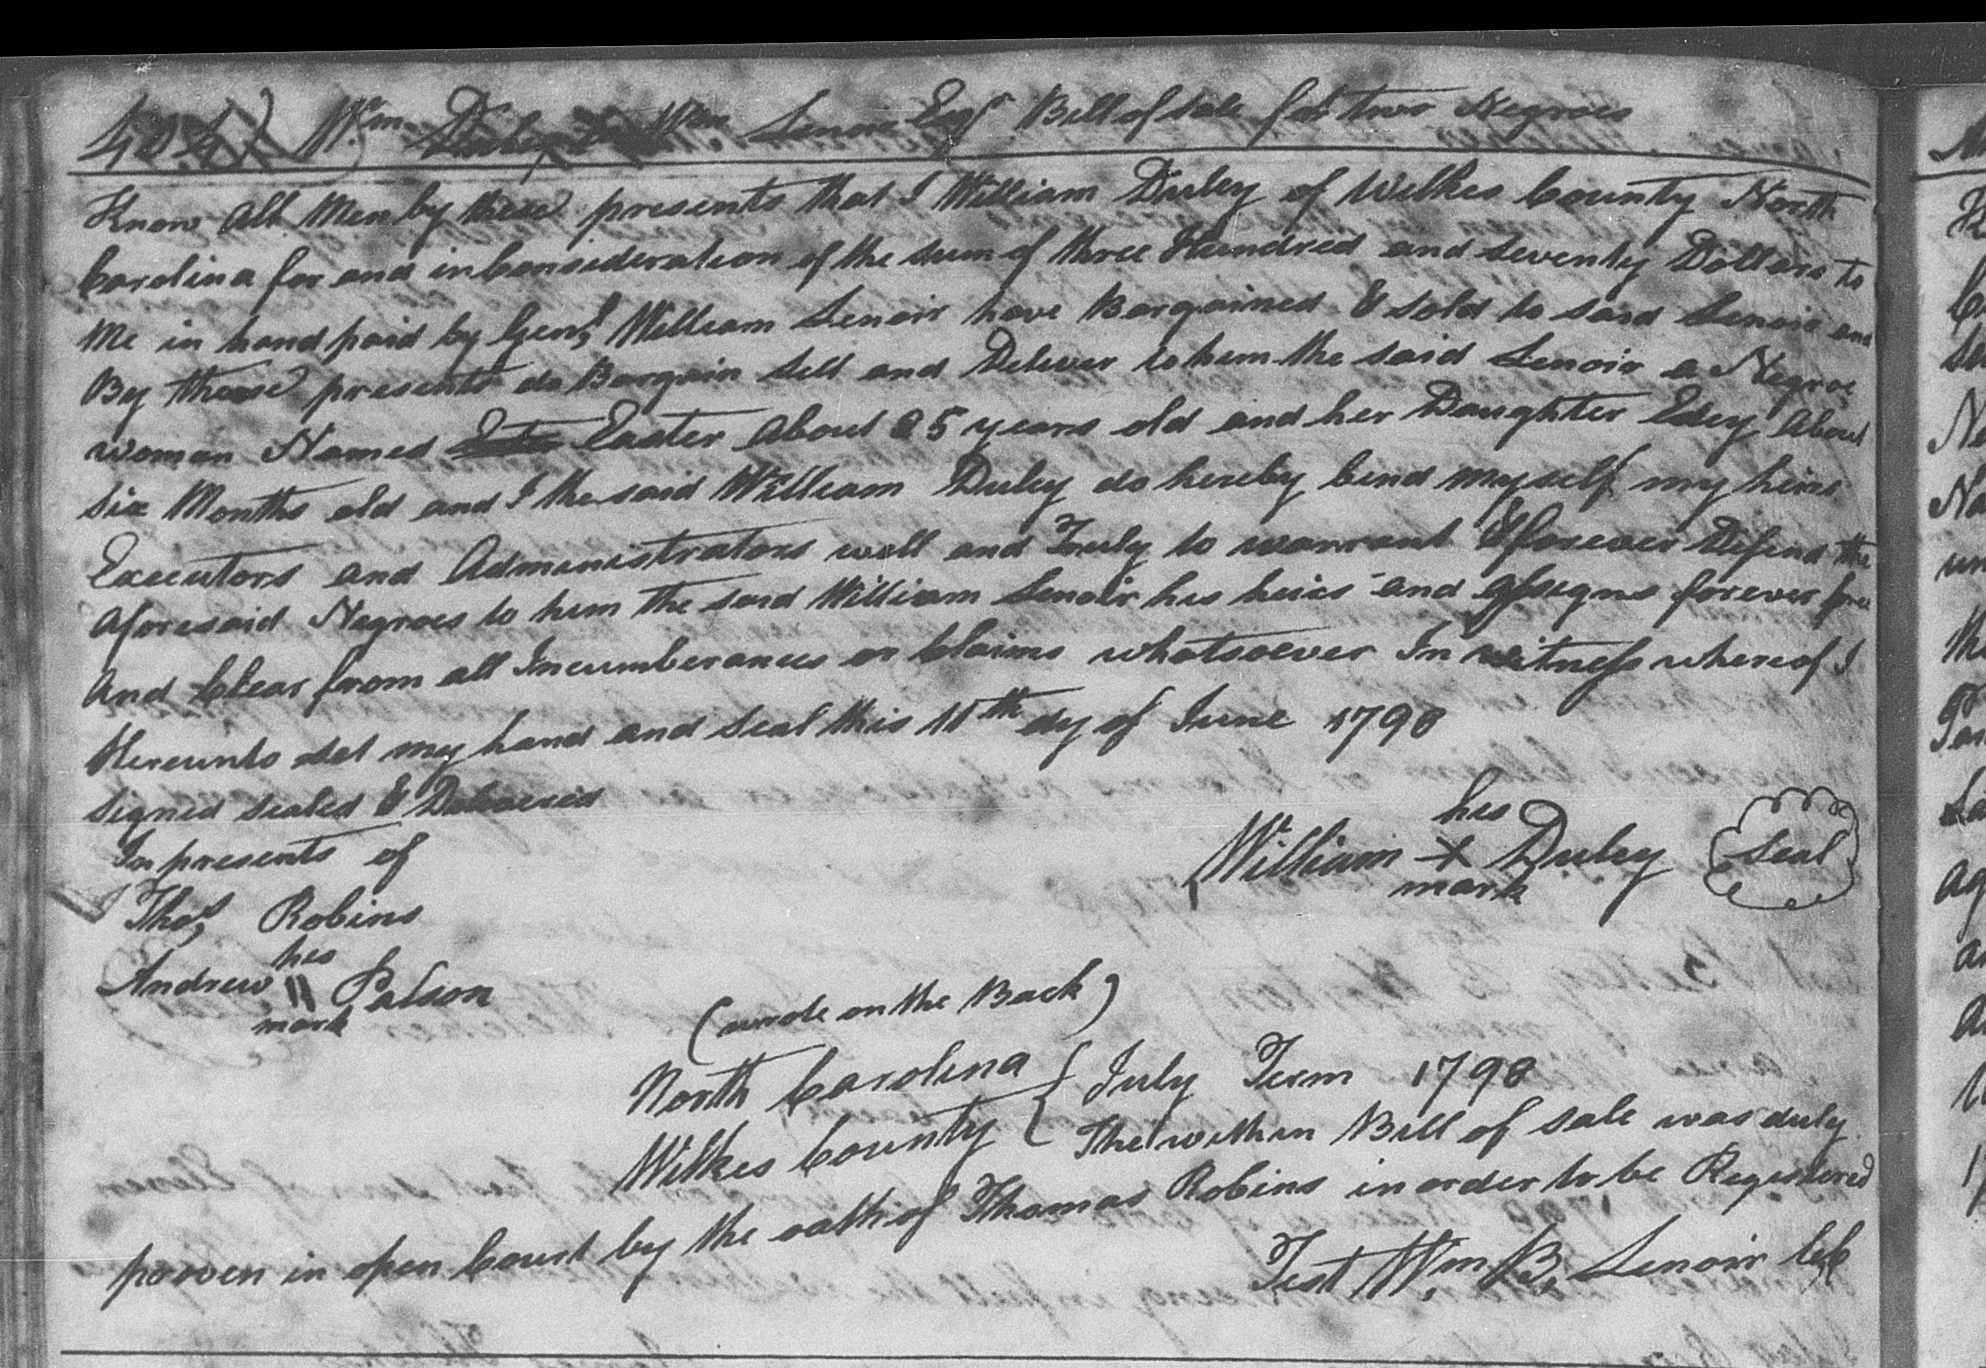 404) Wm. Duley to Wm Lenoir Esqr Bill of sale for two Negroes
Know All Men by these presents that I William Duley of Wilkes County North
Carolina for and in Consideration of the sum of three Hundred and seventy Dollars to
Me in hand paid by Genl, William Lenoir have Bargained & sold to said Lenoir and
By these presents do Bargain Sell and Deliver to him the said Lenoir a Negroe
woman Named Easter About 25 years old and her Daughter Edey About
six Months old and I the said William Duley do hereby bind myself my heirs
Executors and Administrators well and Truly to warrant & forever Defend the
Aforesaid Negroes to him the said William Lenoir his heirs and assigns forever free
And Clear from all Incumberances or Claims whatsoever In witness whereof I
Hereunto set my hand and seal this 11th dy of June 1798
signed sealed & Delivered
In presents of
his
William X Duley Seal
mark
Thos, Robins
his
Andrew 11
mark
(wrote on the Back)
North Carolina { July Term 1798
Wilkes County { The within Bill of sale was duly
prooven in open Court by the oath of Thomas Robins in order to be Registered
Test Wm, B, Lenoir CC